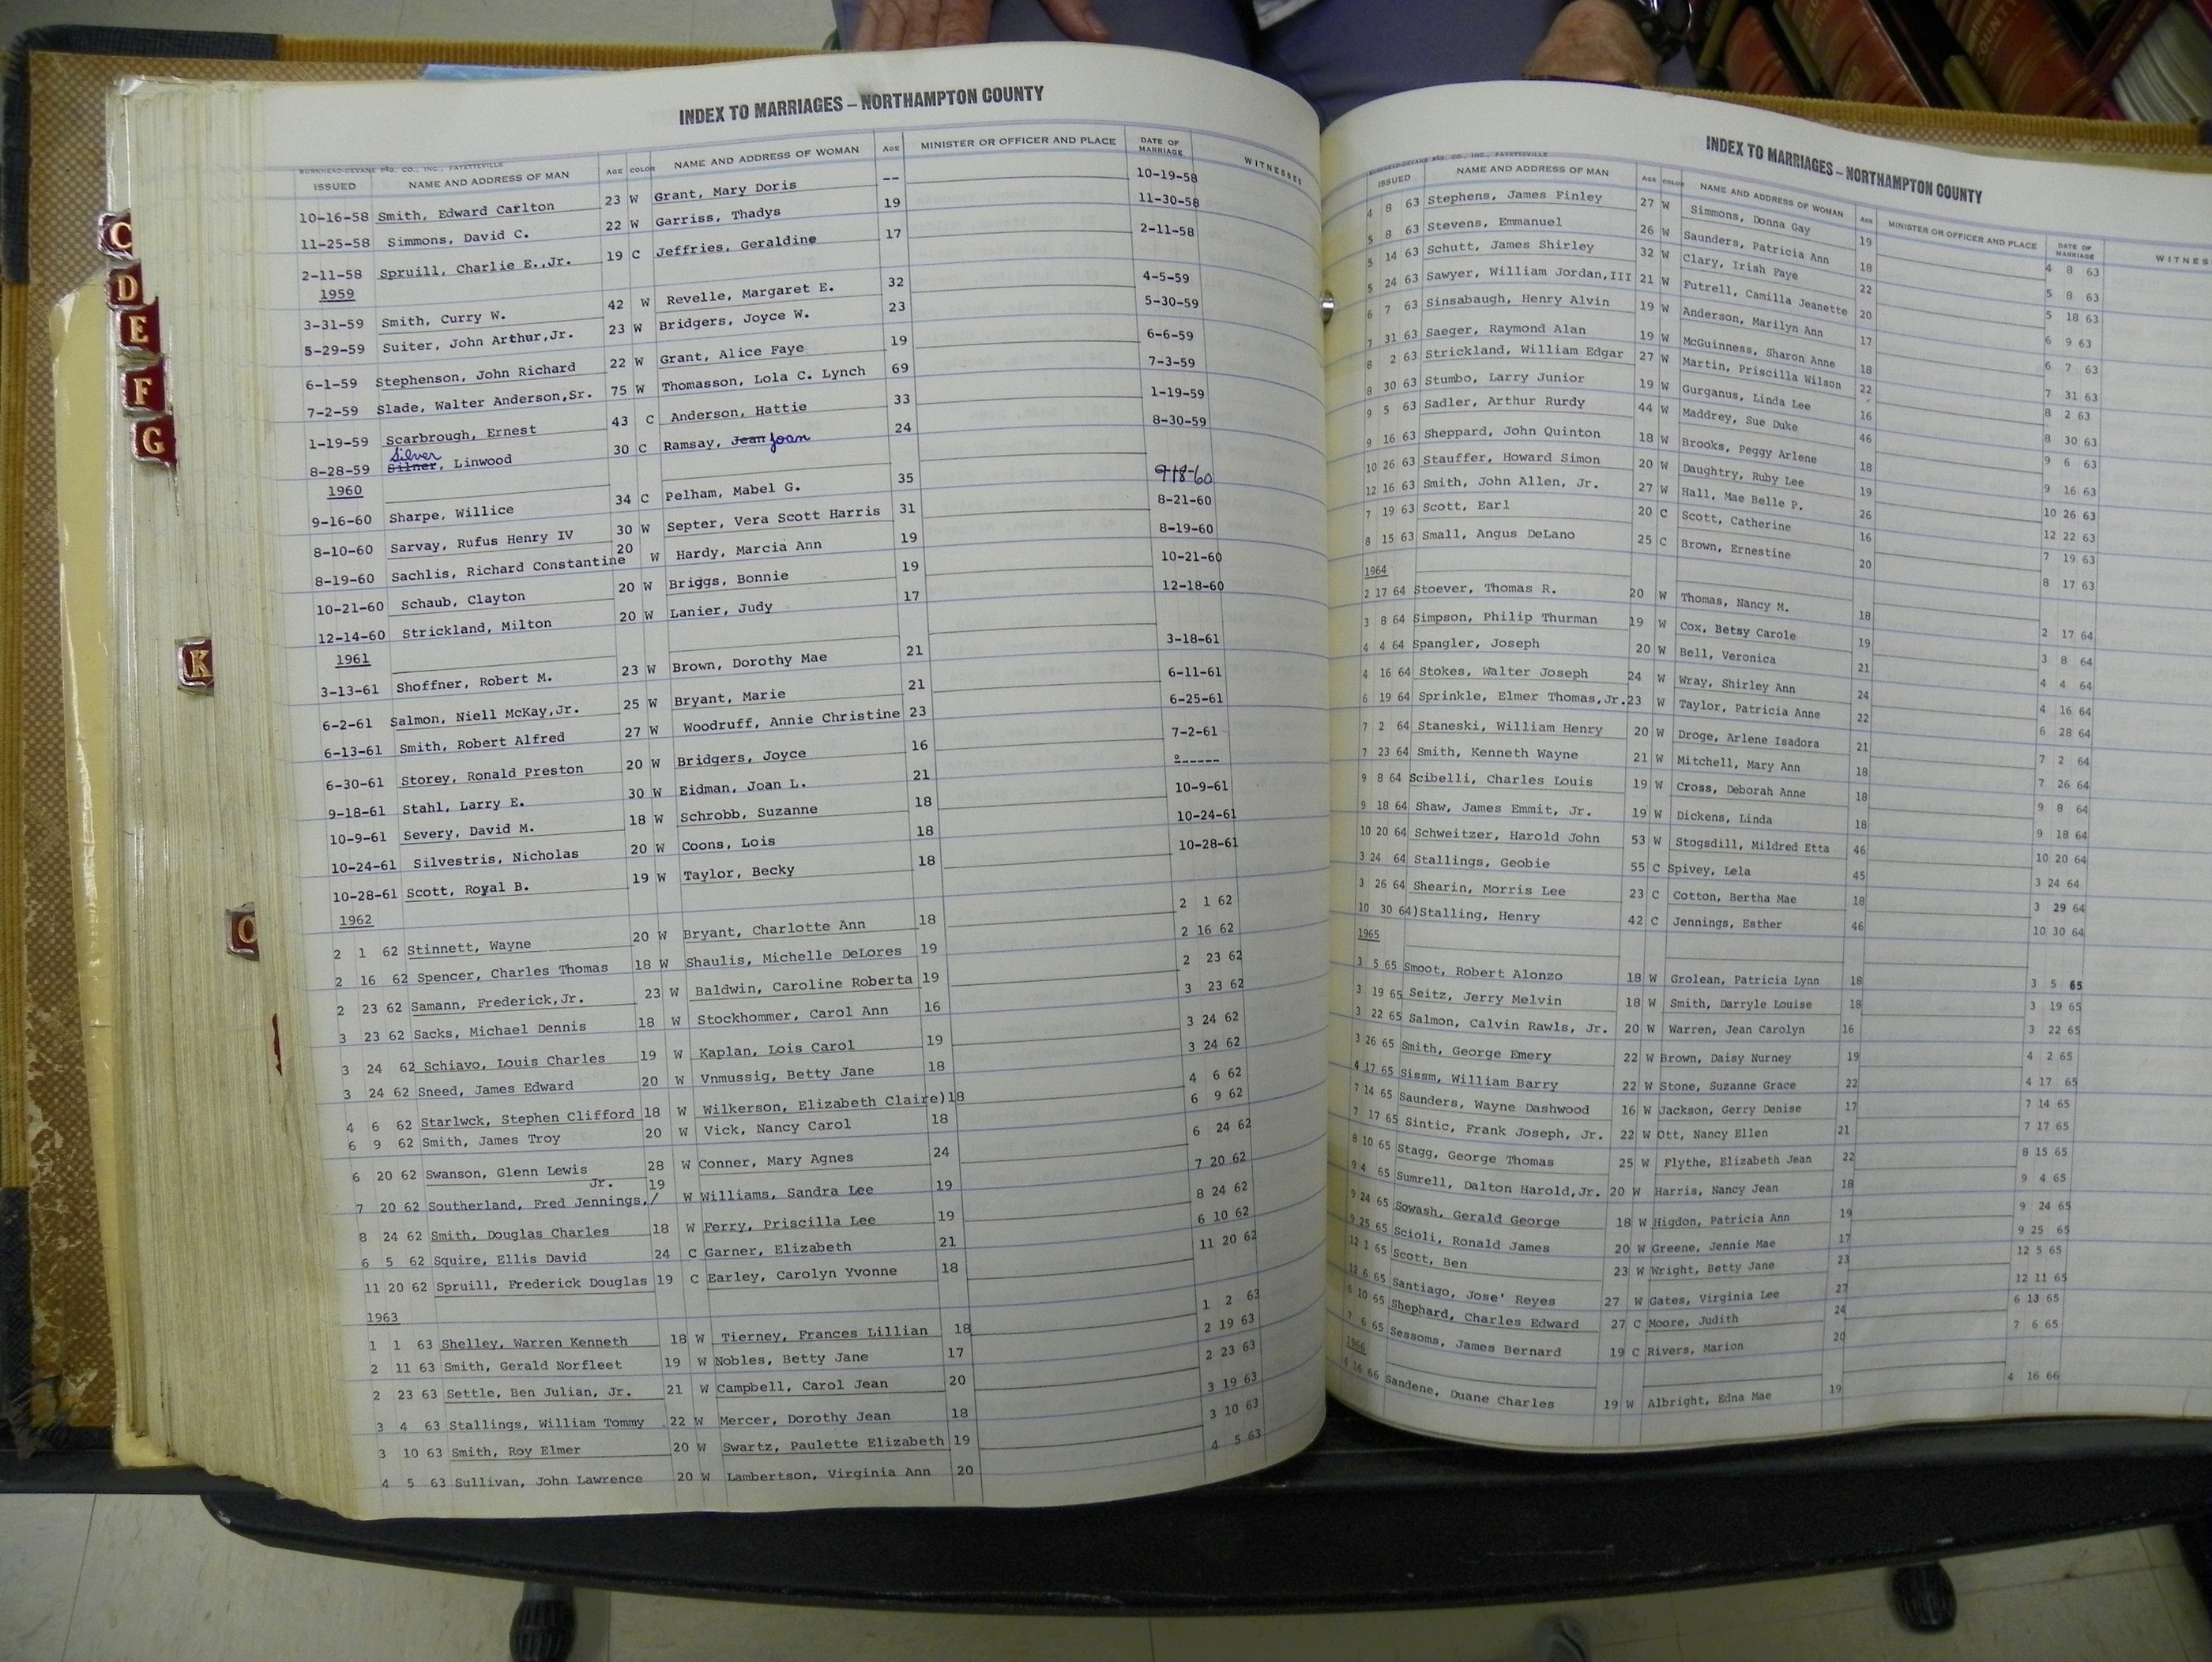 INDEX TO MARRIAGES – NORTHAMPTON COUNTY
BURKHEAD-DEVANE P'TG. CO., INC., FAYETTEVILLE
ISSUED NAME AND ADDRESS OF MAN AGE COLOR NAME AND ADDRESS OF WOMAN AGE MINISTER OR OFFICER AND PLACE DATE OF MARRIAGE WITNESSES
10-16-58 Smith, Edward Carlton 23 W Grant, Mary Doris -- 10-19-58
11-25-58 Simmons, David C. 22 W Garriss, Thadys 19 11-30-58
2-11-58 Spruill, Charlie E.,Jr. 19 C Jeffries, Geraldine 17 2-11-58
1959
3-31-59 Smith, Curry W. 42 W Revelle, Margaret E. 32 4-5-59
5-29-59 Suiter, John Arthur,Jr. 23 W Bridgers, Joyce W. 23 5-30-59
6-1-59 Stephenson, John Richard 22 W Grant, Alice Faye 19 6-6-59
7-2-59 Slade, Walter Anderson,Sr. 75 W Thomasson, Lola C. Lynch 69 7-3-59
1-19-59 Scarbrough, Ernest 43 C Anderson, Hattie 33 1-19-59
Silver
8-28-59 Silner, Linwood 30 C Ramsay, Jean Joan 24 8-30-59
1960
9-16-60 Sharpe, Willice 34 C Pelham, Mabel G. 35 9-18-60
8-10-60 Sarvay, Rufus Henry IV 30 W Septer, Vera Scott Harris 31 8-21-60
8-19-60 Sachlis, Richard Constantine 20 W Hardy, Marcia Ann 19 8-19-60
10-21-60 Schaub, Clayton 20 W Briggs, Bonnie 19 10-21-60
12-14-60 Strickland, Milton 20 W Lanier, Judy 17 12-18-60
1961
3-13-61 Shoffner, Robert M. 23 W Brown, Dorothy Mae 21 3-18-61
6-2-61 Salmon, Niell McKay,Jr. 25 W Bryant, Marie 21 6-11-61
6-13-61 Smith, Robert Alfred 27 W Woodruff, Annie Christine 23 6-25-61
6-30-61 Storey, Ronald Preston 20 W Bridgers, Joyce 16 7-2-61
9-18-61 Stahl, Larry E. 30 W Eidman, Joan L. 21 ------
10-9-61 Severy, David M. 18 W Schrobb, Suzanne 18 10-9-61
10-24-61 Silvestris, Nicholas 20 W Coons, Lois 18 10-24-61
10-28-61 Scott, Royal B. 19 W Taylor, Becky 18 10-28-61
1962
2 1 62 Stinnett, Wayne 20 W Bryant, Charlotte Ann 18 2 1 62
2 16 62 Spencer, Charles Thomas 18 W Shaulis, Michelle DeLores 19 2 16 62
2 23 62 Samann, Frederick,Jr. 23 W Baldwin, Caroline Roberta 19 2 23 62
3 23 62 Sacks, Michael Dennis 18 W Stockhommer, Carol Ann 16 3 23 62
3 24 62 Schiavo, Louis Charles 19 W Kaplan, Lois Carol 19 3 24 62
3 24 62 Sneed, James Edward 20 W Vnmussig, Betty Jane 18 3 24 62
4 6 62 Starlwck, Stephen Clifford 18 W Wilkerson, Elizabeth Claire)18 4 6 62
6 9 62 Smith, James Troy 20 W Vick, Nancy Carol 18 6 9 62
6 20 62 Swanson, Glenn Lewis 28 W Conner, Mary Agnes 24 6 24 62
Jr. 19
7 20 62 Southerland, Fred Jennings,/ W Williams, Sandra Lee 19 7 20 62
8 24 62 Smith, Douglas Charles 18 W Ferry, Priscilla Lee 19 8 24 62
6 5 62 Squire, Ellis David 24 C Garner, Elizabeth 21 6 10 62
11 20 62 Spruill, Frederick Douglas 19 C Earley, Carolyn Yvonne 18 11 20 62
1963
1 1 63 Shelley, Warren Kenneth 18 W Tierney, Frances Lillian 18 1 2 63
2 11 63 Smith, Gerald Norfleet 19 W Nobles, Betty Jane 17 2 19 63
2 23 63 Settle, Ben Julian, Jr. 21 W Campbell, Carol Jean 20 2 23 63
3 4 63 Stallings, William Tommy 22 W Mercer, Dorothy Jean 18 3 19 63
3 10 63 Smith, Roy Elmer 20 W Swartz, Paulette Elizabeth 19 3 10 63
4 5 63 Sullivan, John Lawrence 20 W Lambertson, Virginia Ann 20 4 5 63
INDEX TO MARRIAGES – NORTHAMPTON COUNTY
BURKHEAD-DEVANE P'TG. CO., INC., FAYETTEVILLE
ISSUED NAME AND ADDRESS OF MAN AGE COLOR NAME AND ADDRESS OF WOMAN AGE MINISTER OR OFFICER AND PLACE DATE OF MARRIAGE WITNES
4 8 63 Stephens, James Finley 27 W Simmons, Donna Gay 19 4 8 63
5 8 63 Stevens, Emmanuel 26 W Saunders, Patricia Ann 18 5 8 63
5 14 63 Schutt, James Shirley 32 W Clary, Irish Faye 22 5 18 63
5 24 63 Sawyer, William Jordan,III 21 W Futrell, Camilla Jeanette 20 6 9 63
6 7 63 Sinsabaugh, Henry Alvin 19 W Anderson, Marilyn Ann 17 6 7 63
7 31 63 Saeger, Raymond Alan 19 W McGuinness, Sharon Anne 18 7 31 63
8 2 63 Strickland, William Edgar 27 W Martin, Priscilla Wilson 22 8 2 63
8 30 63 Stumbo, Larry Junior 19 W Gurganus, Linda Lee 16 8 30 63
9 5 63 Sadler, Arthur Rurdy 44 W Maddrey, Sue Duke 46 9 6 63
9 16 63 Sheppard, John Quinton 18 W Brooks, Peggy Arlene 18 9 16 63
10 26 63 Stauffer, Howard Simon 20 W Daughtry, Ruby Lee 19 10 26 63
12 16 63 Smith, John Allen, Jr. 27 W Hall, Mae Belle P. 26 12 22 63
7 19 63 Scott, Earl 20 C Scott, Catherine 16 7 19 63
8 15 63 Small, Angus DeLano 25 C Brown, Ernestine 20 8 17 63
1964
2 17 64 Stoever, Thomas R. 20 W Thomas, Nancy M. 18 2 17 64
3 8 64 Simpson, Philip Thurman 19 W Cox, Betsy Carole 19 3 8 64
4 4 64 Spangler, Joseph 20 W Bell, Veronica 21 4 4 64
4 16 64 Stokes, Walter Joseph 24 W Wray, Shirley Ann 24 4 16 64
6 19 64 Sprinkle, Elmer Thomas,Jr.23 W Taylor, Patricia Anne 22 6 28 64
7 2 64 Staneski, William Henry 20 W Droge, Arlene Isadora 21 7 2 64
7 23 64 Smith, Kenneth Wayne 21 W Mitchell, Mary Ann 18 7 26 64
9 8 64 Scibelli, Charles Louis 19 W Cross, Deborah Anne 18 9 8 64
9 18 64 Shaw, James Emmit, Jr. 19 W Dickens, Linda 18 9 18 64
10 20 64 Schweitzer, Harold John 53 W Stogsdill, Mildred Etta 46 10 20 64
3 24 64 Stallings, Geobie 55 C Spivey, Lela 45 3 24 64
3 26 64 Shearin, Morris Lee 23 C Cotton, Bertha Mae 18 3 29 64
10 30 64)Stalling, Henry 42 C Jennings, Esther 46 10 30 64
1965
3 5 65 Smoot, Robert Alonzo 18 W Grolean, Patricia Lynn 18 3 5 65
3 19 65 Seitz, Jerry Melvin 18 W Smith, Darryle Louise 18 3 19 65
3 22 65 Salmon, Calvin Rawls, Jr. 20 W Warren, Jean Carolyn 16 3 22 65
3 26 65 Smith, George Emery 22 W Brown, Daisy Nurney 19 4 2 65
4 17 65 Sissm, William Barry 22 W Stone, Suzanne Grace 22 4 17 65
7 14 65 Saunders, Wayne Dashwood 16 W Jackson, Gerry Denise 17 7 14 65
7 17 65 Sintic, Frank Joseph, Jr. 22 W Ott, Nancy Ellen 21 7 17 65
8 10 65 Stagg, George Thomas 25 W Flythe, Elizabeth Jean 22 8 15 65
9 4 65 Sumrell, Dalton Harold,Jr. 20 W Harris, Nancy Jean 18 9 4 65
9 24 65 Sowash, Gerald George 18 W Higdon, Patricia Ann 19 9 24 65
9 25 65 Scioli, Ronald James 20 W Greene, Jennie Mae 17 9 25 65
12 1 65 Scott, Ben 23 W Wright, Betty Jane 23 12 5 65
12 6 65 Santiago, Jose' Reyes 27 W Gates, Virginia Lee 27 12 11 65
6 10 65 Shephard, Charles Edward 27 C Moore, Judith 24 6 13 65
7 6 65 Sessoms, James Bernard 19 C Rivers, Marion 20 7 6 65
1966
4 16 66 Sandene, Duane Charles 19 W Albright, Edna Mae 19 4 16 66
C
D
E
F
G
K
O
COUNTY